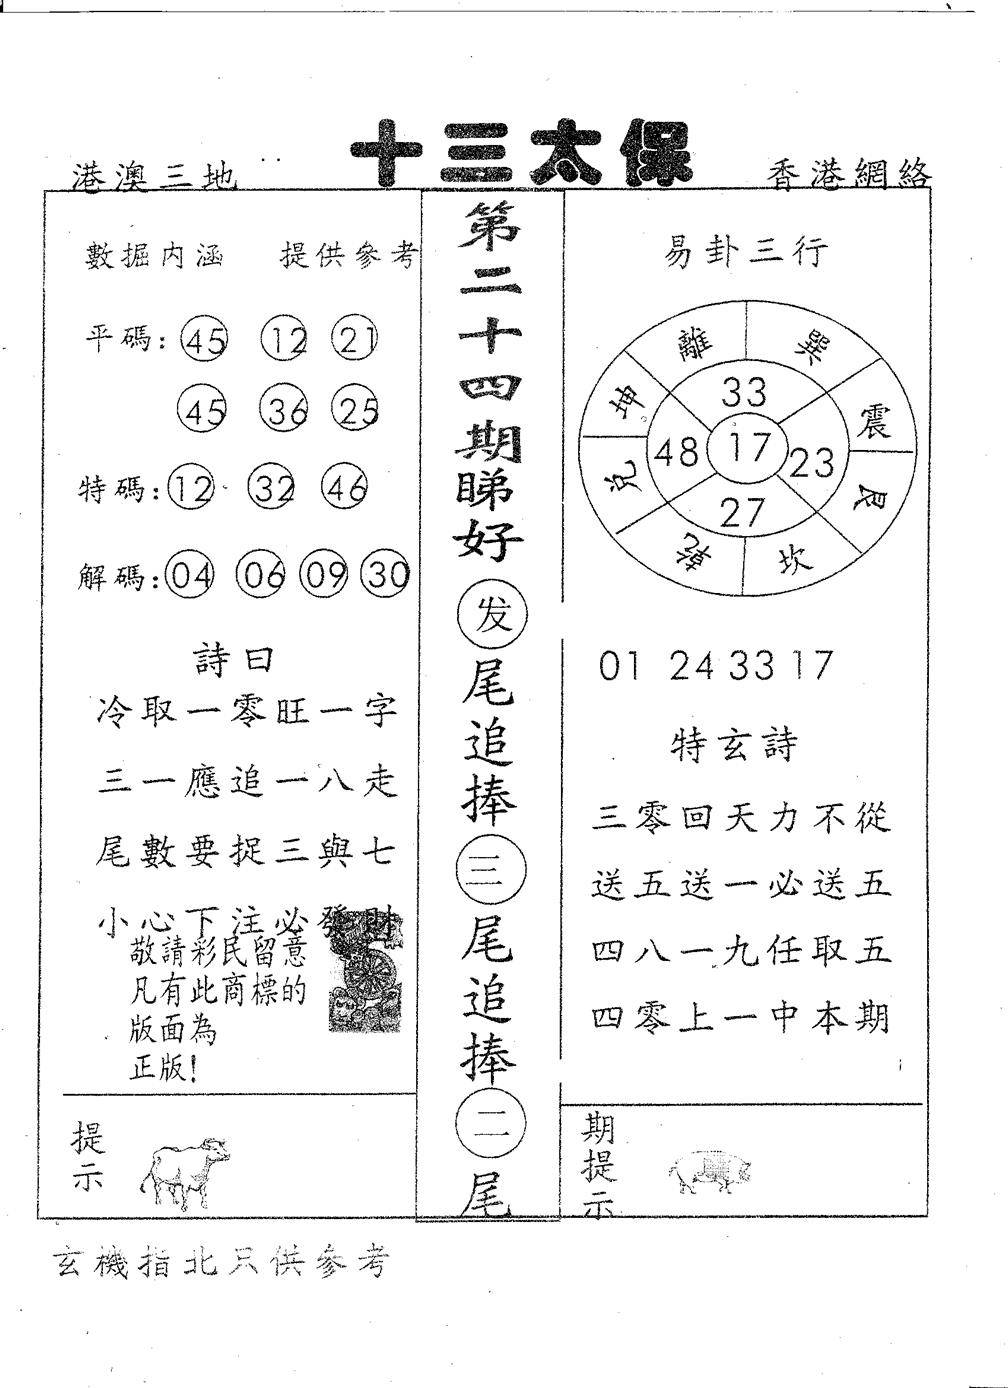 十三太保
港澳三地
香港網絡
數掘内涵 提供參考
平碼: 45 12 21
45 36 25
特碼: 12 32 46
解碼: 04 06 09 30
詩曰
冷取一零旺一字
三一應追一八走
尾數要捉三與七
小心下注必發財
敬請彩民留意
凡有此商標的
版面為
正版!
提示
第二十四期睇好发尾追捧三尾追捧二尾
易卦三行
離 巽
坤 33 震
48 17 23
兌 27 艮
乾 坎
01 24 33 17
特玄詩
三零回天力不從
送五送一必送五
四八一九任取五
四零上一中本期
期提示
玄機指北只供參考